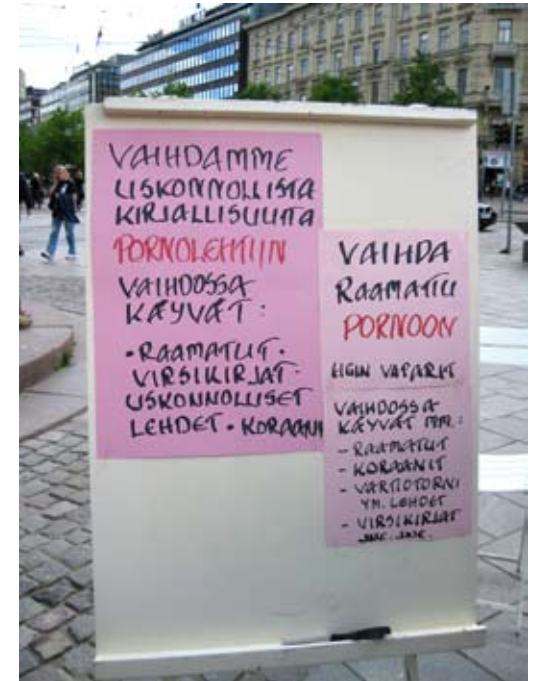 VAIHDAMME
USKONNOLLISTA
KIRJALLISUUTTA
PORNOLEHTIIN
VAIHDOSSA
KÄYVÄT:
•RAAMATUT•
VIRSIKIRJAT•
USKONNOLLISET
LEHDET•KORAANI
VAIHDA
RAAMATTU
PORNOON
HGIN VAPARIT
VAIHDOSSA
KÄYVÄT MM.:
- RAAMATUT
- KORAANIT
- VARTIOTORNI
YM. LEHDET
- VIRSIKIRJAT
JNE. JNE.